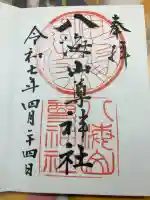 奉拝
八海山尊神社
令和七年四月二十四日